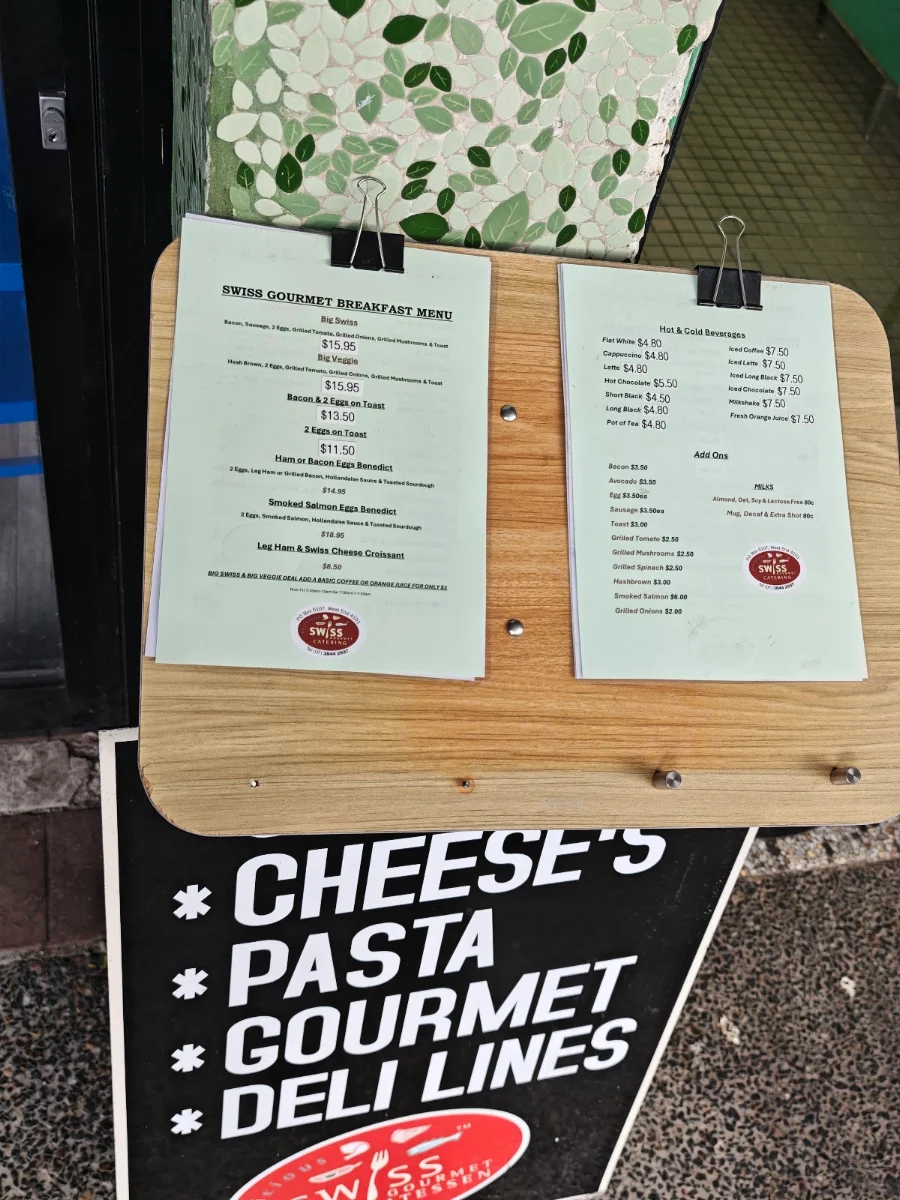 SWISS GOURMET BREAKFAST MENU
Big Swiss
Bacon, Sausage, 2 Eggs, Grilled Tomato, Grilled Onions, Grilled Mushrooms & Toast
$15.95
Big Veggie
Hash Brown, 2 Eggs, Grilled Tomato, Grilled Onions, Grilled Mushrooms & Toast
$15.95
Bacon & 2 Eggs on Toast
$13.50
2 Eggs on Toast
$11.50
Ham or Bacon Eggs Benedict
2 Eggs, Leg Ham or Grilled Bacon, Hollandaise Sauce & Toasted Sourdough
$14.95
Smoked Salmon Eggs Benedict
2 Eggs, Smoked Salmon, Hollandaise Sauce & Toasted Sourdough
$18.95
Leg Ham & Swiss Cheese Croissant
$8.50
BIG SWISS & BIG VEGGIE DEAL ADD A BASIC COFFEE OR ORANGE JUICE FOR ONLY $3
PO Box 5107, West End 4101
SWISS
GOURMET
CATERING
Tel (07) 3844 2937
Hot & Cold Beverages
Flat White $4.80
Cappuccino $4.80
Latte $4.80
Hot Chocolate $5.50
Short Black $4.50
Long Black $4.80
Pot of Tea $4.80
Iced Coffee $7.50
Iced Latte $7.50
Iced Long Black $7.50
Iced Chocolate $7.50
Milkshake $7.50
Fresh Orange Juice $7.50
Add Ons
Bacon $3.50
Avocado $3.50
Egg $3.50ea
Sausage $3.50ea
Toast $3.00
Grilled Tomato $2.50
Grilled Mushrooms $2.50
Grilled Spinach $2.50
Hashbrown $3.00
Smoked Salmon $6.00
Grilled Onions $2.00
MILKS
Almond, Oat, Soy & Lactose Free 80c
Mug, Decaf & Extra Shot 80c
PO Box 5107, West End 4101
SWISS
GOURMET
CATERING
* CHEESE'S
* PASTA
* GOURMET
* DELI LINES
SWISS
GOURMET